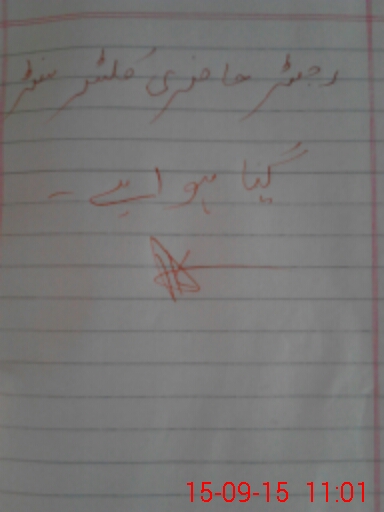 رجسٹر حاضری کلسٹر سنٹر
گیا ہوا ہے۔
15-09-15 11:01